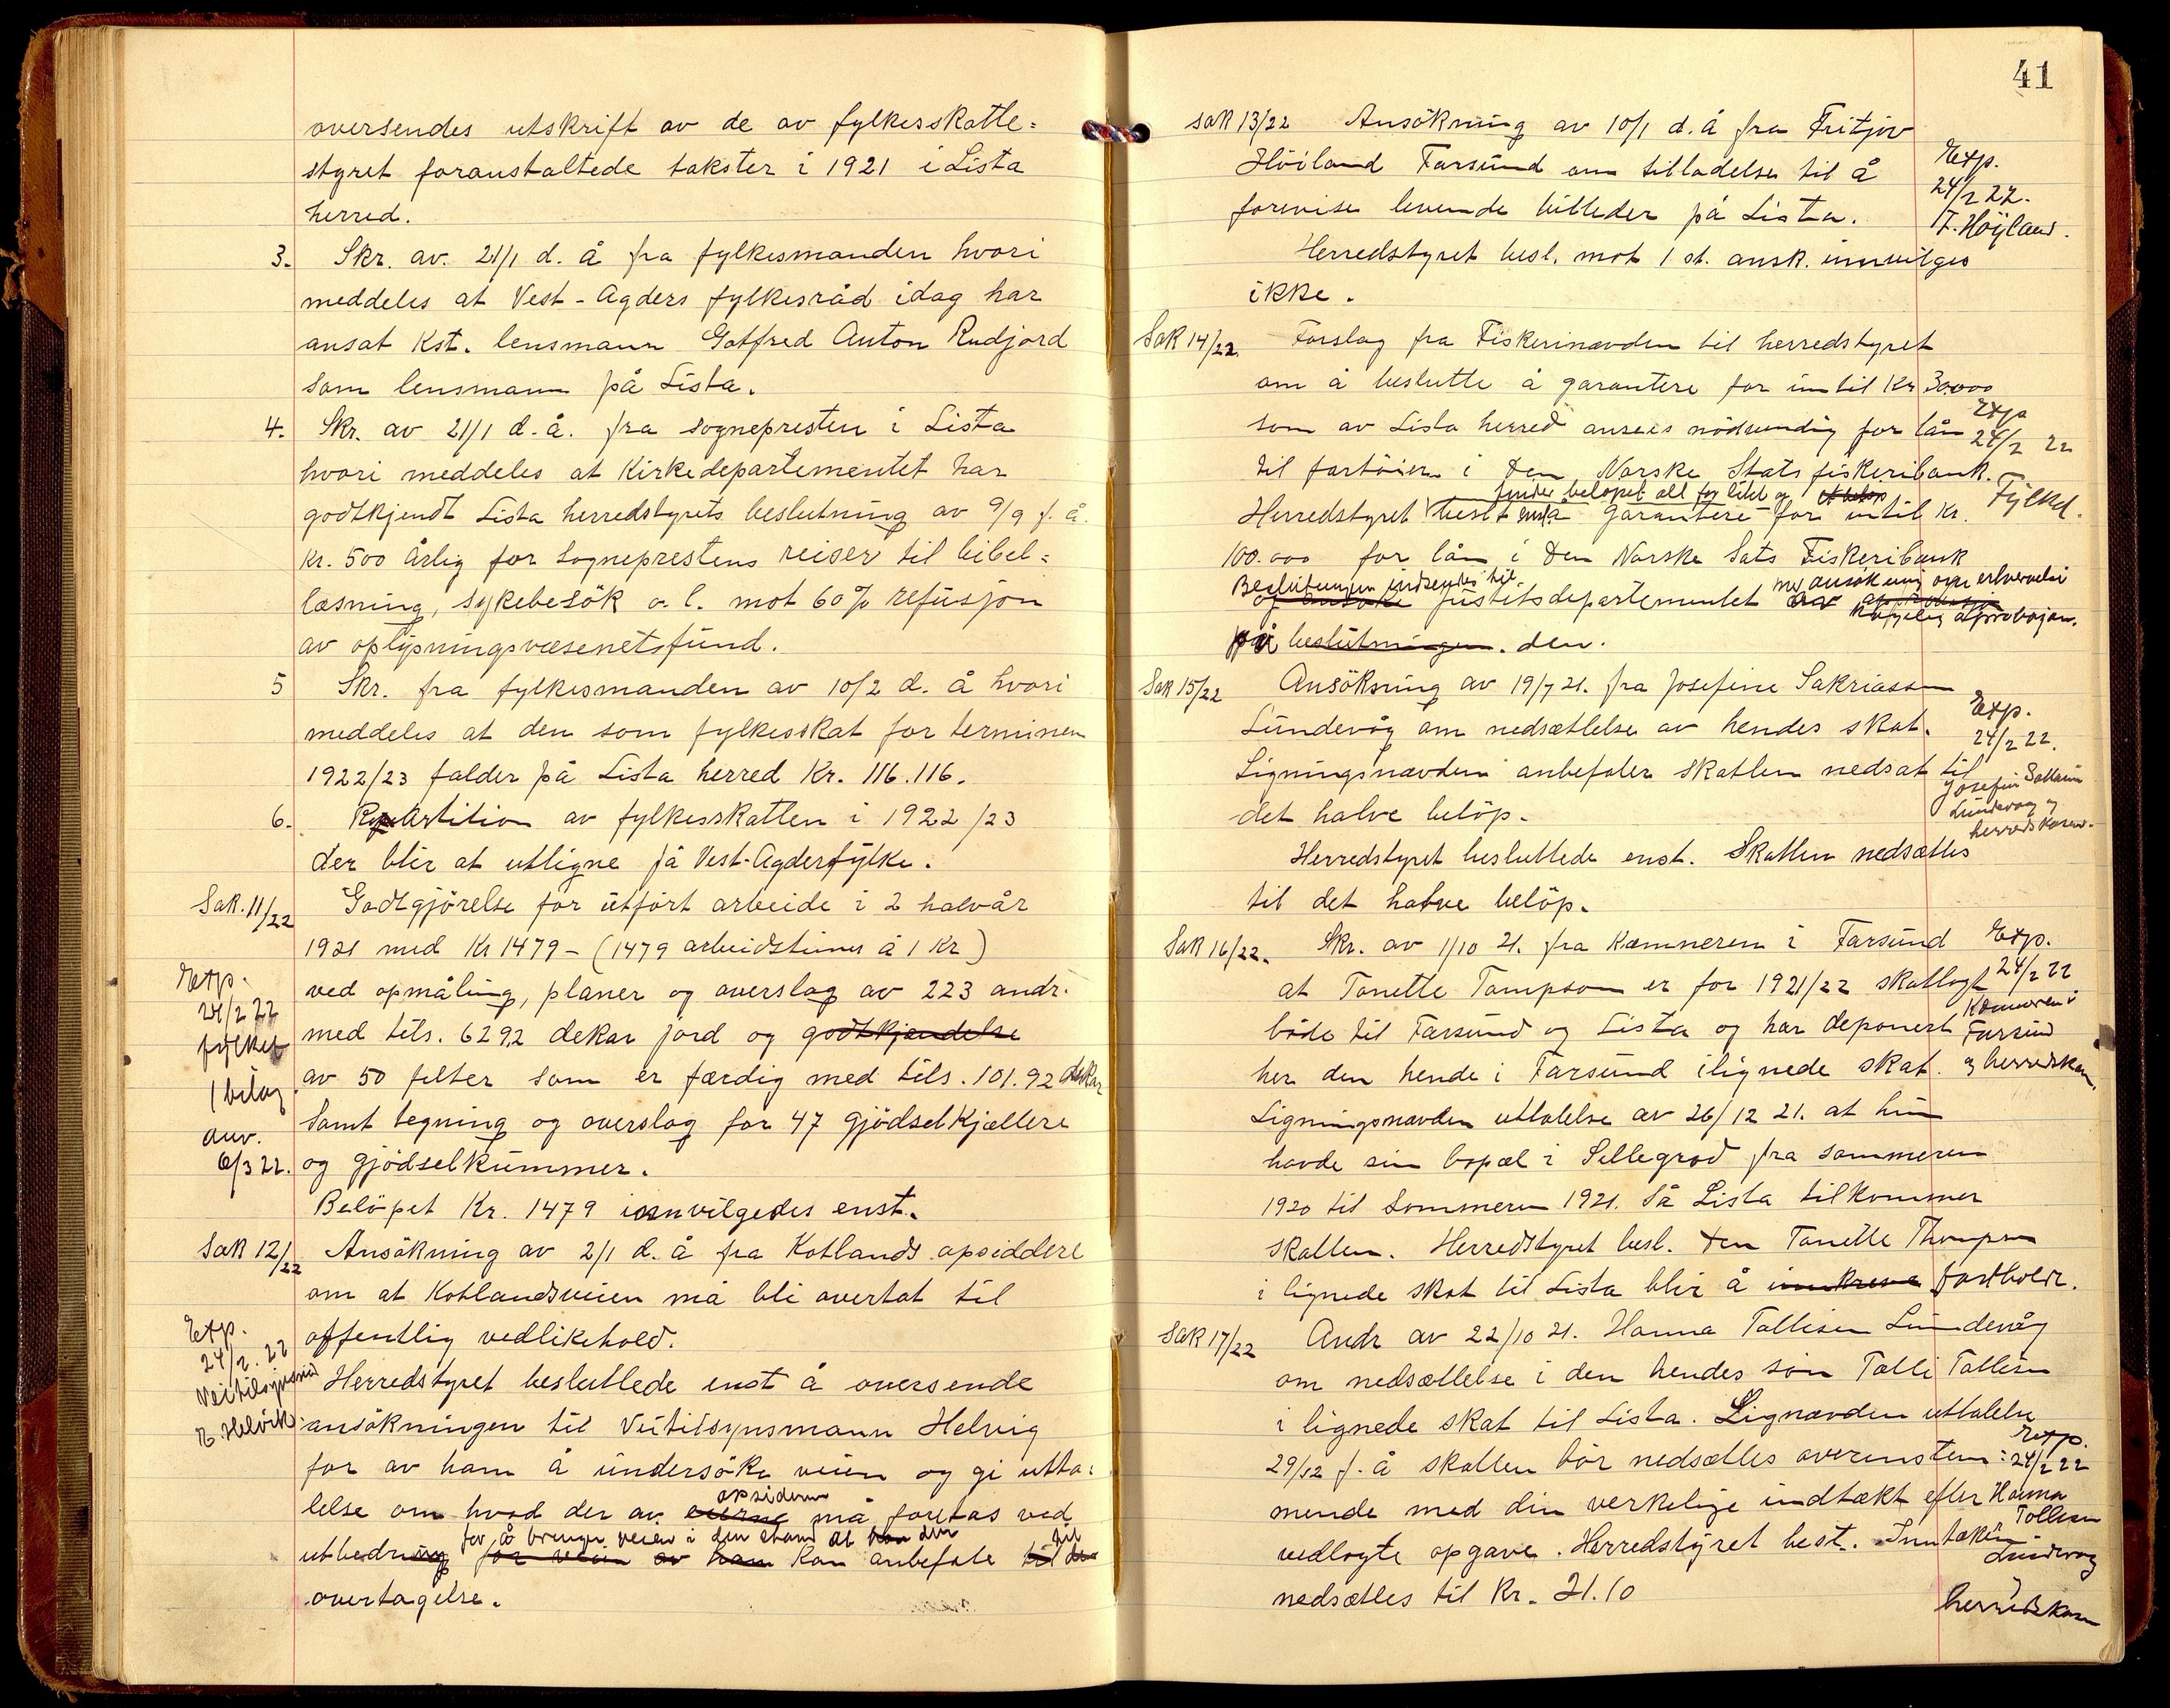 oversendes utskrift av de av fylkesskatte=
styret foranstaltede takster i 1921 i Lista
herred.
3. Skr. av. 21/1 d. å fra fylkesmanden hvori
meddeles at Vest-Agders fylkesråd idag har
ansat Kst. lensmann Gotfred Anton Rudjord
som lensmann på Lista.
4. Skr. av 21/1 d.å. fra sognepresten i Lista
hvori meddeles at Kirkedepartementet har
godtkjendt Lista herredstyrets beslutning av 9/9 f. å.
kr. 500 årlig for Sogneprestens reiser til bibel=
læsning, sykebesök o. l. mot 60% refusjon
av oplysningsvæsenetsfund.
5 Skr. fra fylkesmanden av 10/2 d. å hvori
meddeles at den som fylkesskat for terminen
1922/23 falder på Lista herred Kr. 116.116.
6. Repartition av fylkesskatten i 1922/23
der blir at utligne på Vest-Agderfylke.
Sak. 11/22 Godtgjörelse for utfört arbeide i 2 halvår
1921 med Kr 1479 - (1479 arbeidstimer à 1 Kr)
Exp.
24/2 22
fylket
1 bilag
anv.
6/3 22.
ved opmåling, planer og overslag av 223 andr.
med tils. 629,2 dekar jord og godtkjendelse
av 50 felter som er færdig med tils. 101.92 dekar
Samt tegning og overslag for 47 gjödselkjellere
og gjödselkummer.
Belöpet Kr. 1479 innvilgedes enst.
Sak 12/22 Ansökning av 2/1 d. å fra Kotlands opsiddere
om at Kotlandsveien må bli overtat til
offentlig vedlikehold.
Exp.
24/2. 22
Veitilsynsmd
E. Helvik
Herredstyret besluttede enst å oversende
ansökningen til Veitilsynsmann Helvig
for av ham å undersöke veien og gi utta=
lelse om hvad der av eierne opsiderne må foretas ved
utbedring for veien av ham for å bringe veien i den stand at han den kan anbefale til den til
overtagelse.
41
Sak 13/22 Ansökning av 10/1 d. å fra Fritjov
Höiland Farsund om tilladelse til å
forevise levende billeder på Lista.
Exp.
24/2 22.
F. Höyland.
Herredstyret besl. mot 1 st. ansk. innvilges
ikke.
Sak 14/22. Forslag fra Fiskerinævden til herredstyret
om å beslutte å garantere for intil Kr 30.000
som av Lista herred ansees nödvendig for lån
til fartöier i Den Norske Stats fiskeribank.
Exp
24/2 22
Fylket.
finder belöpet alt for litet og et belöp
Herredstyret besl. enst. å garantere for intil kr.
100.000 for lån i Den Norske Sats Fiskeribank
Beslutningen indsendes til med ansökning om erhvervelse
og ansöke Justitsdepartementet av approbasjon Kongelig approbasjon.
på beslutningen. den.
Sak 15/22 Ansökning av 19/7 21. fra Josefine Sakriassen
Lundevåg om nedsættelse av hendes skat.
Ligningsnævden anbefaler skatten nedsat til
det halve belöp.
Exp.
24/2 22.
Josefin
Lundevog og
herredskasser.
Herredstyret besluttede enst. Skatten nedsættes
til det halve belöp.
Sak 16/22. Skr. av 1/10 21. fra Kæmneren i Farsund
at Tonette Tompson er for 1921/22 skatlagt
både til Farsund og Lista og har deponert
her den hende i Farsund ilignede skat.
Exp.
24/2 22
Kemneren i
Farsund
og herredskas.
Ligningsnævden uttalelse av 26/12 21. at hun
havde sin bopæl i Sellegrod fra sommeren
1920 til Sommeren 1921. Så Lista tilkommer
Skatten. Herredstyret besl. Den Tonette Thompson
i lignede skat til Lista blir å innkreve fastholdt.
Sak 17/22 Andr av 22/10 21. Hanna Tollisen Lundevåg
om nedsættelse i den hendes sön Tolli Tollisen
i lignede skat til Lista. Lignævden uttalelse
29/12 f. å skatten bör nedsættes overenstem=
mende med din verkelige indtækt efter
vedlagte opgave. Herredstyret best. Inntækten
nedsættes til Kr. 21.10
Exp.
24/2 22
Hanna
Tollisen
Lundevog
herredskasn